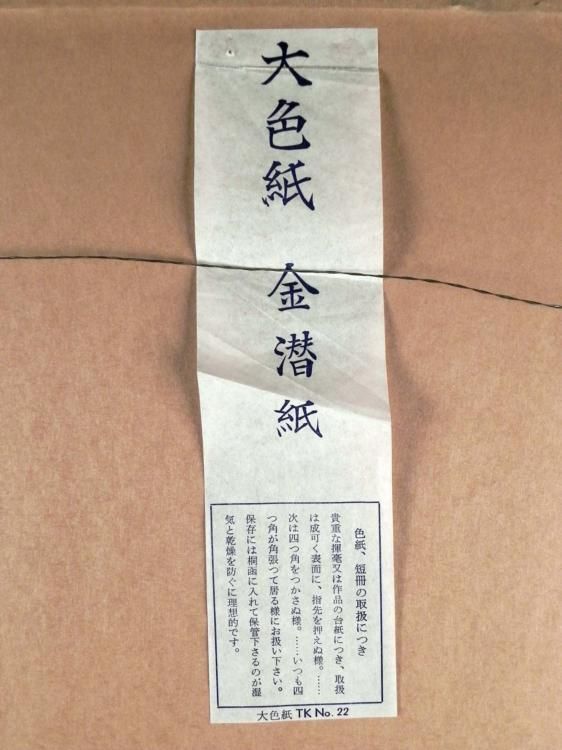 大色紙 金潜紙
色紙、短冊の取扱につき
貴重な揮毫又は作品の台紙につき、取扱
は成可く表面に、指先を押えぬ様。……
次は四つ角をつかさぬ様。……いつも四
つ角が角張つて居る様にお扱い下さい。
保存には桐函に入れて保管下さるのが湿
気と乾燥を防ぐに理想的です。
大色紙 TK No. 22